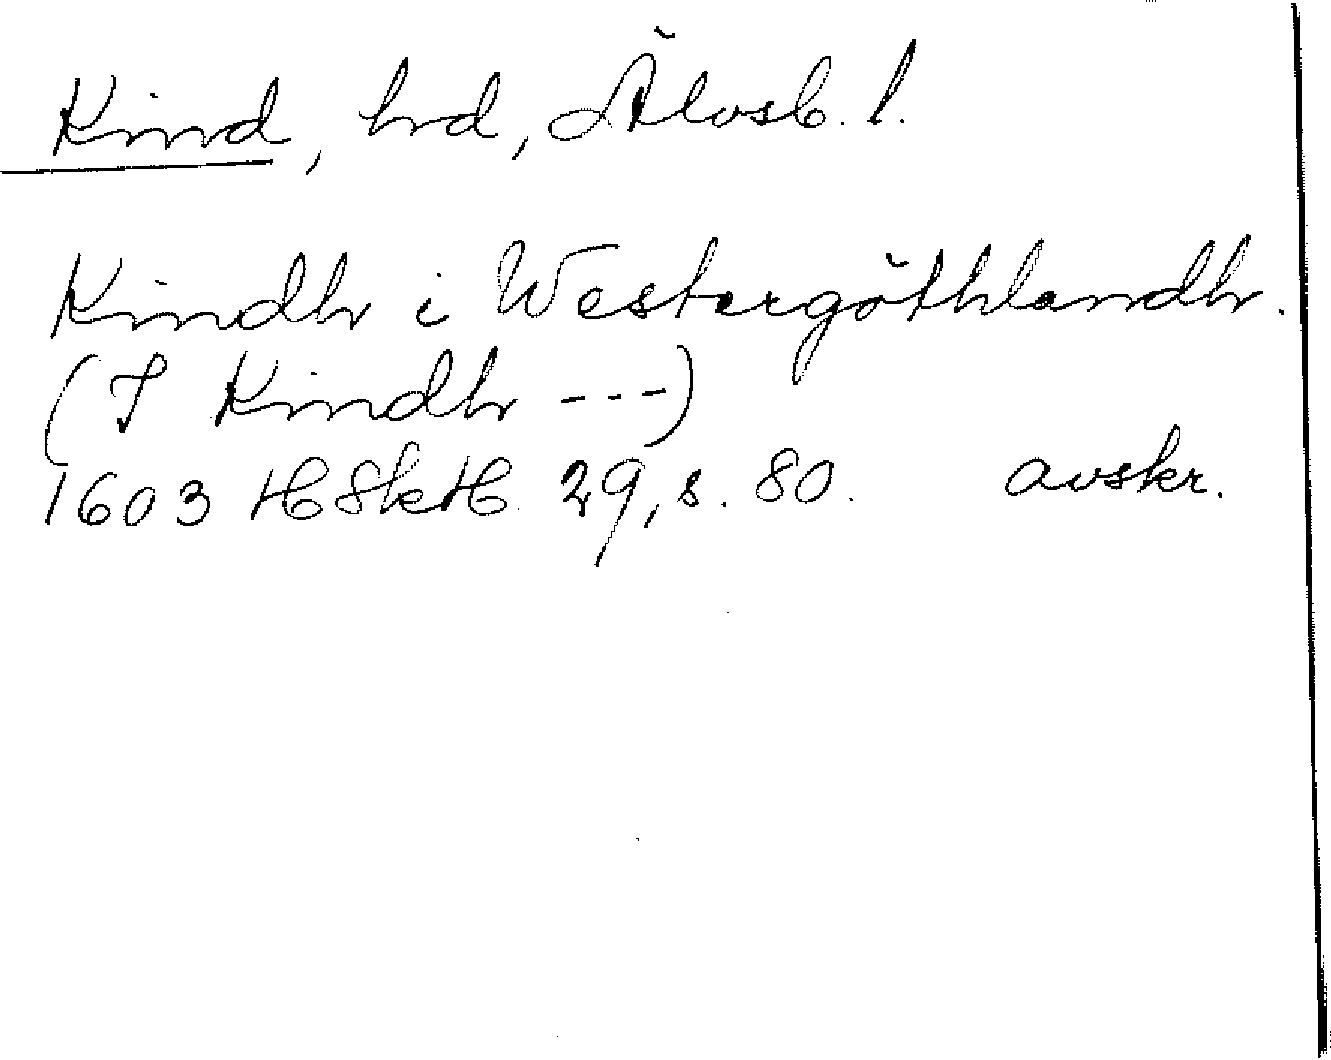 Kind, hrd, Älvsb. l.
Kindh i Westergöthlandh.
(I Kindh ---)
1603 HSkH 29, s. 80. avskr.